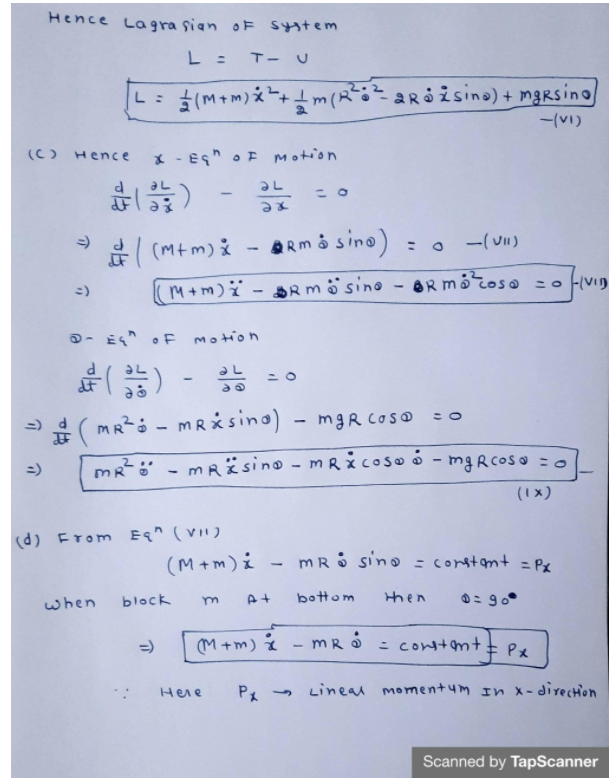 Hence Lagrasian of system
L = T - U
L = 1/2 (M+m) ẋ² + 1/2 m (R² θ̇² - 2R θ̇ ẋ sinθ) + mgR sinθ
-(VI)
(C) Hence x - Eqⁿ of Motion
d/dt (∂L/∂ẋ) - ∂L/∂x = 0
=) d/dt ( (M+m) ẋ - Rm θ̇ sinθ) = 0 -(VII)
=) (M+m) ẍ - Rm θ̈ sinθ - Rm θ̇² cosθ = 0 -(VII)
θ - Eqⁿ of motion
d/dt (∂L/∂θ̇) - ∂L/∂θ = 0
=) d/dt ( mR² θ̇ - mR ẋ sinθ) - mgR cosθ = 0
=) mR² θ̈ - mR ẍ sinθ - mR ẋ cosθ θ̇ - mgR cosθ = 0
(IX)
(d) From Eqⁿ (VII)
(M+m) ẋ - mR θ̇ sinθ = constant = Px
When block m At bottom then θ = 90°
=) (M+m) ẋ - mR θ̇ = constant = Px
∵ Here Px → Linear momentum In x-direction
Scanned by TapScanner